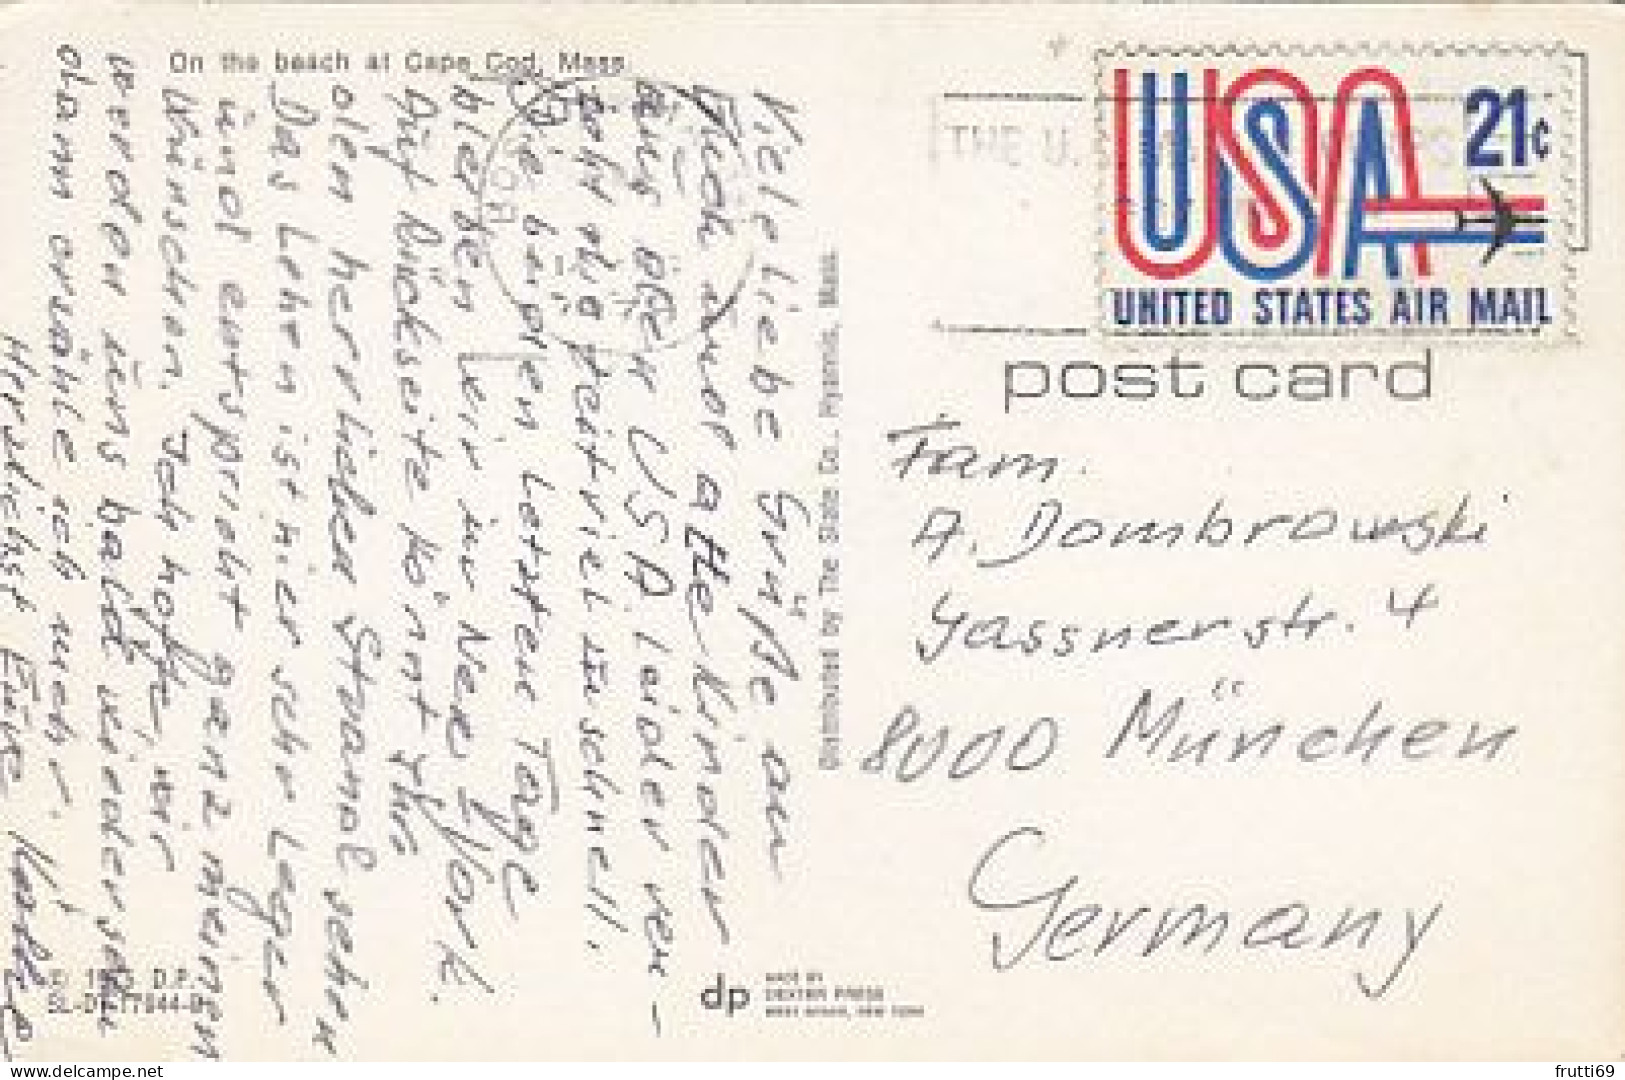 On the beach at Cape Cod, Mass.
Viele liebe Grüße an
Euch und alle Kinder
aus den USA. Leider ver-
geht die Zeit viel zu schnell.
Die beiden letzten Tage
bleiben wir in New York.
Auf Rückseite könnt Ihr
den herrlichen Strand sehen
Das Leben ist hier sehr leger
und entspricht ganz meinen
Wünschen. Ich hoffe, wir
werden uns bald wiedersehn
dann erzähle ich mehr.
Herzlichst Eure
Distributed by The Slate Co., Hyannis, Mass.
D.P.
dp
MADE BY
DEXTER PRESS
WEST NYACK, NEW YORK
THE U.
USA 21c
UNITED STATES AIR MAIL
post card
Fam.
A. Dombrowski
Gassnerstr. 4
8000 München
Germany
frutti69
delcampe.net